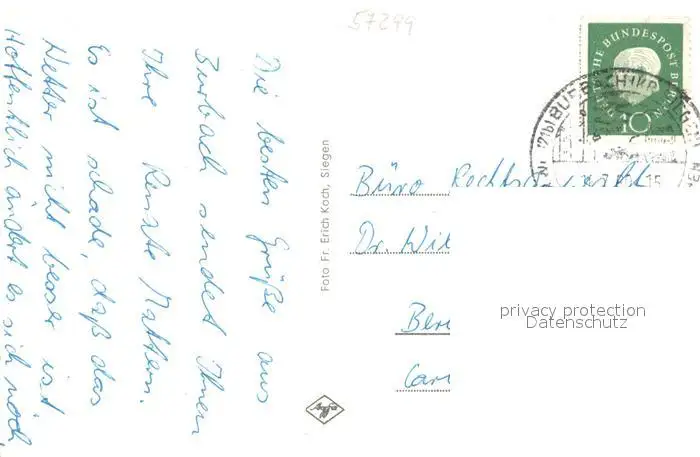 57299
Die besten Grüße aus
Burbach sendet Ihnen
Ihre Renate
Es ist schade, daß das
Wetter nicht besser ist
Hoffentlich ändert es sich noch,
Foto Fr. Erich Koch, Siegen
DEUTSCHE BUNDESPOST BERLIN
10
BURBACH
Büro
Dr. Wil
Ber
Agfa
privacy protection
Datenschutz